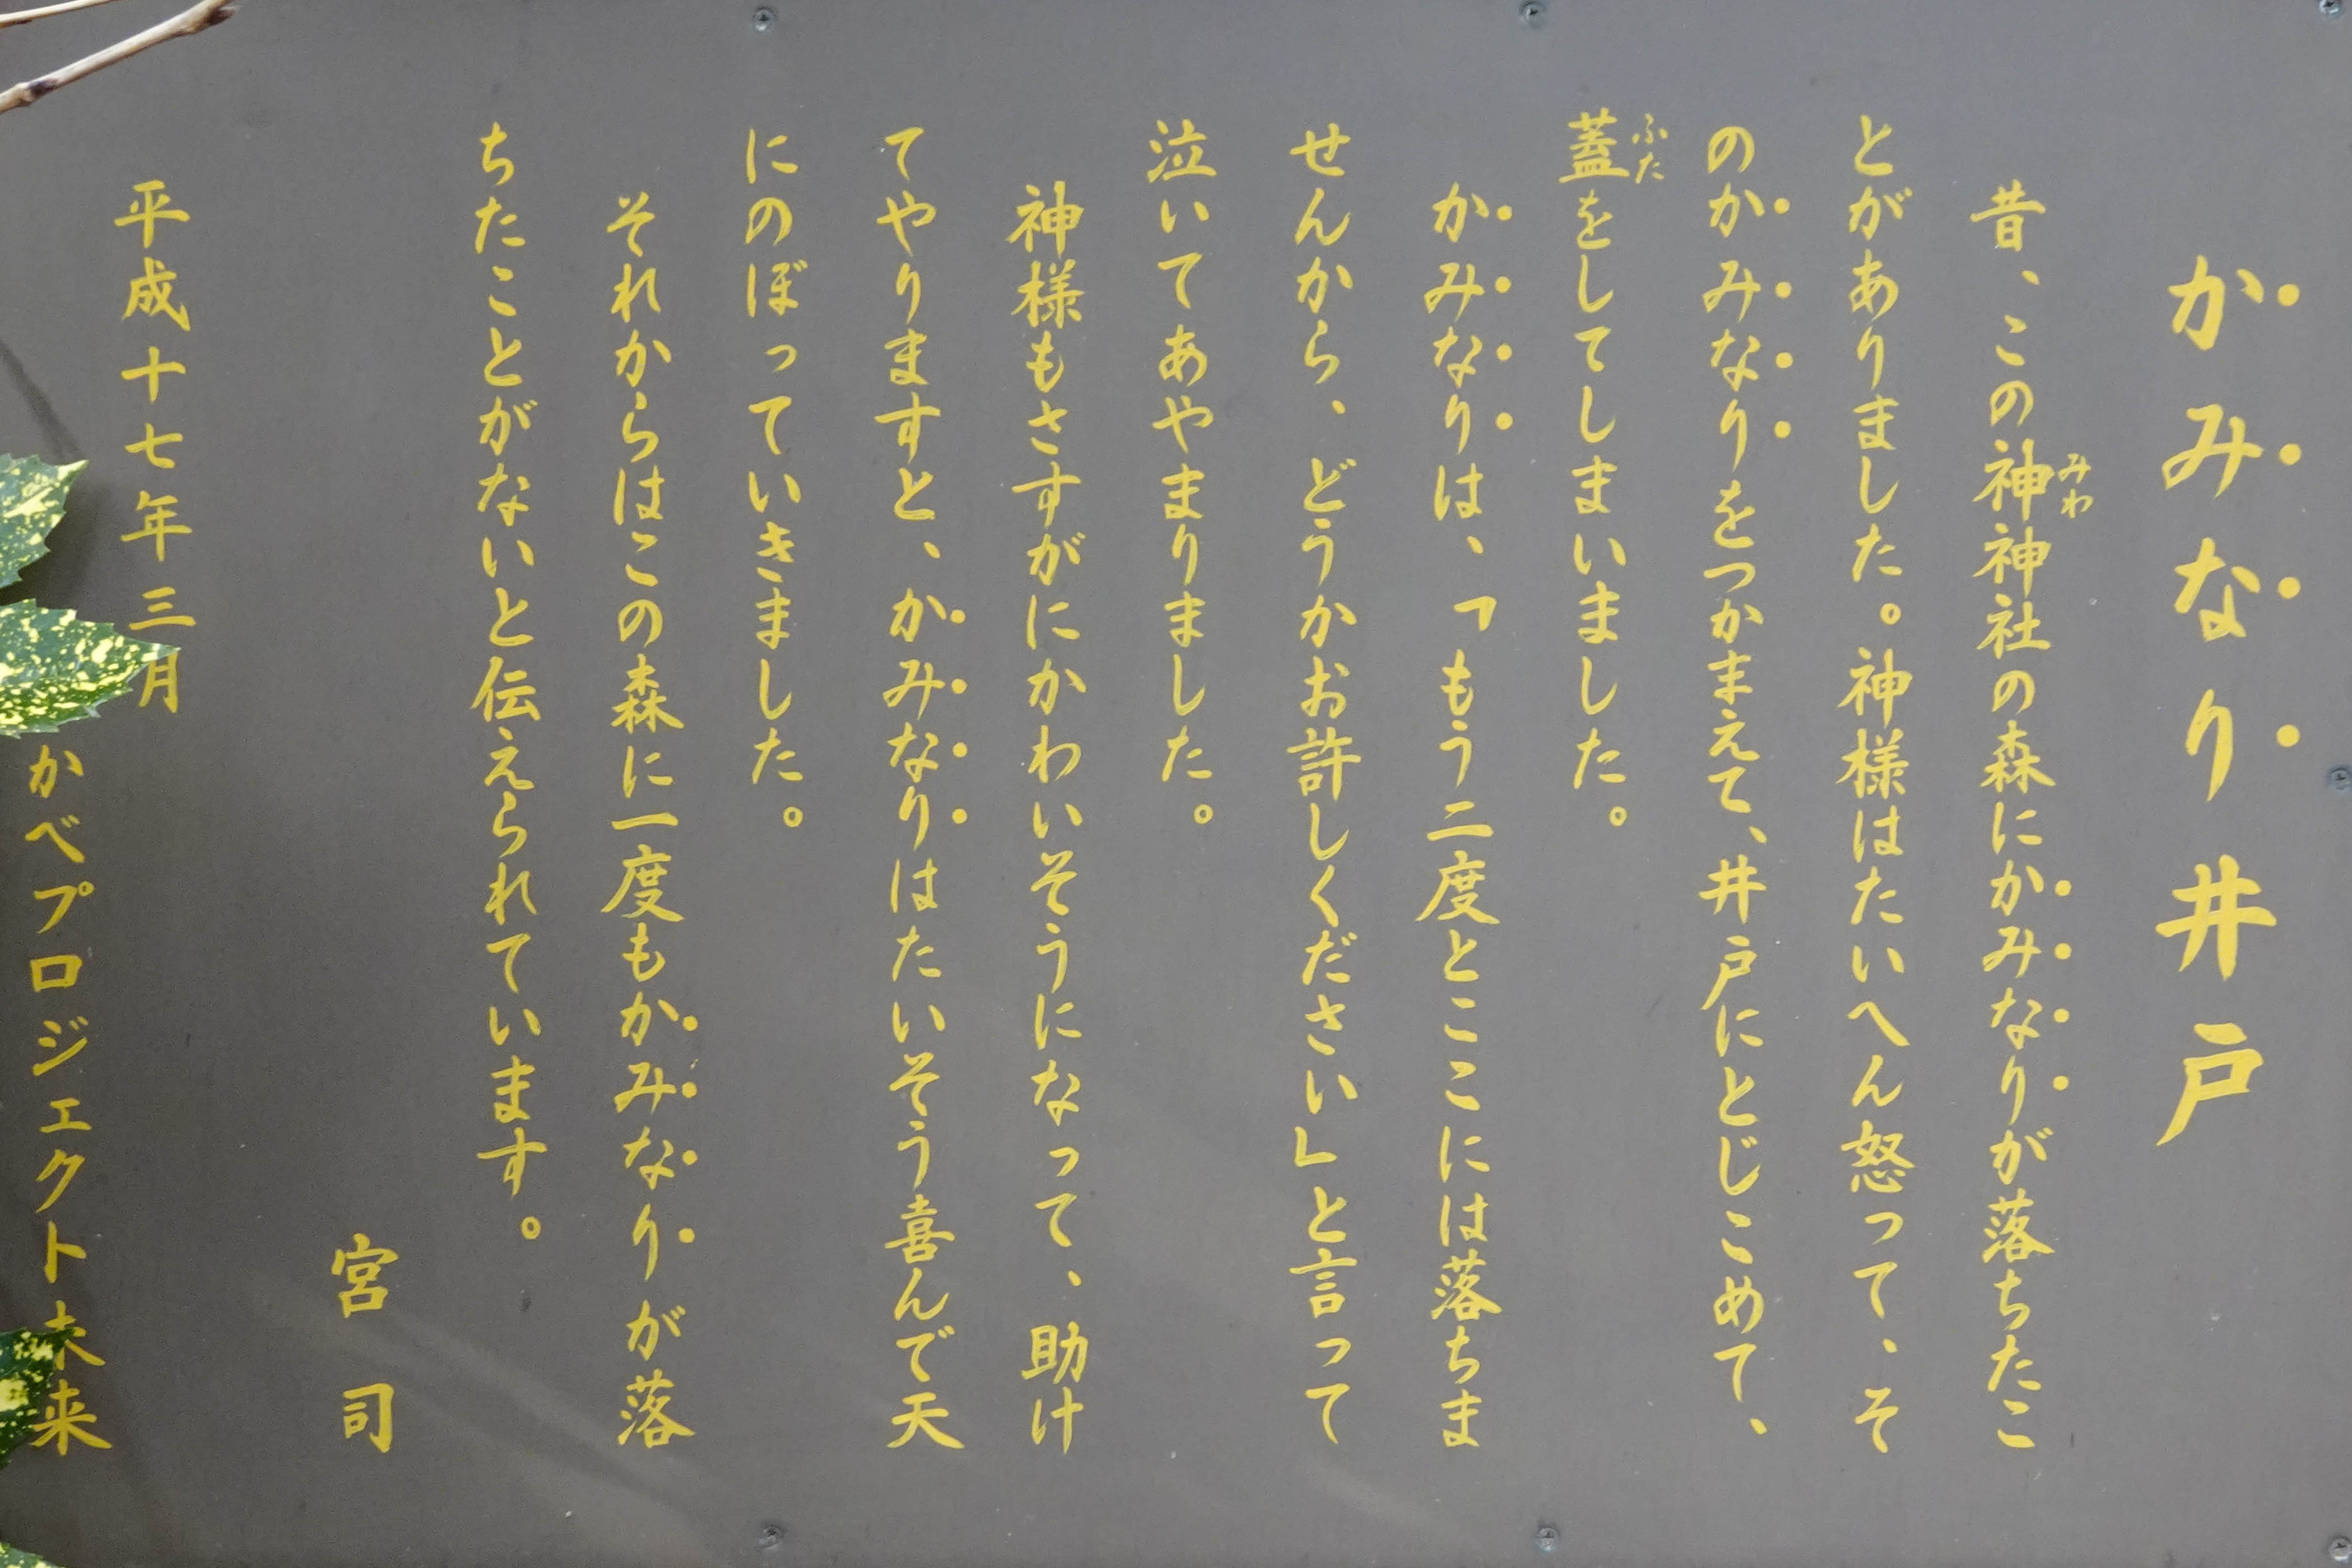 かみなり井戸
昔、この神神社の森にかみなりが落ちたこ
とがありました。神様はたいへん怒って、そ
のかみなりをつかまえて、井戸にとじこめて、
蓋をしてしまいました。
かみなりは、「もう二度とここには落ちま
せんから、どうかお許しください」と言って
泣いてあやまりました。
神様もさすがにかわいそうになって、助け
てやりますと、かみなりはたいそう喜んで天
にのぼっていきました。
それからはこの森に一度もかみなりが落
ちたことがないと伝えられています。
宮司
平成十七年三月
かべプロジェクト未来